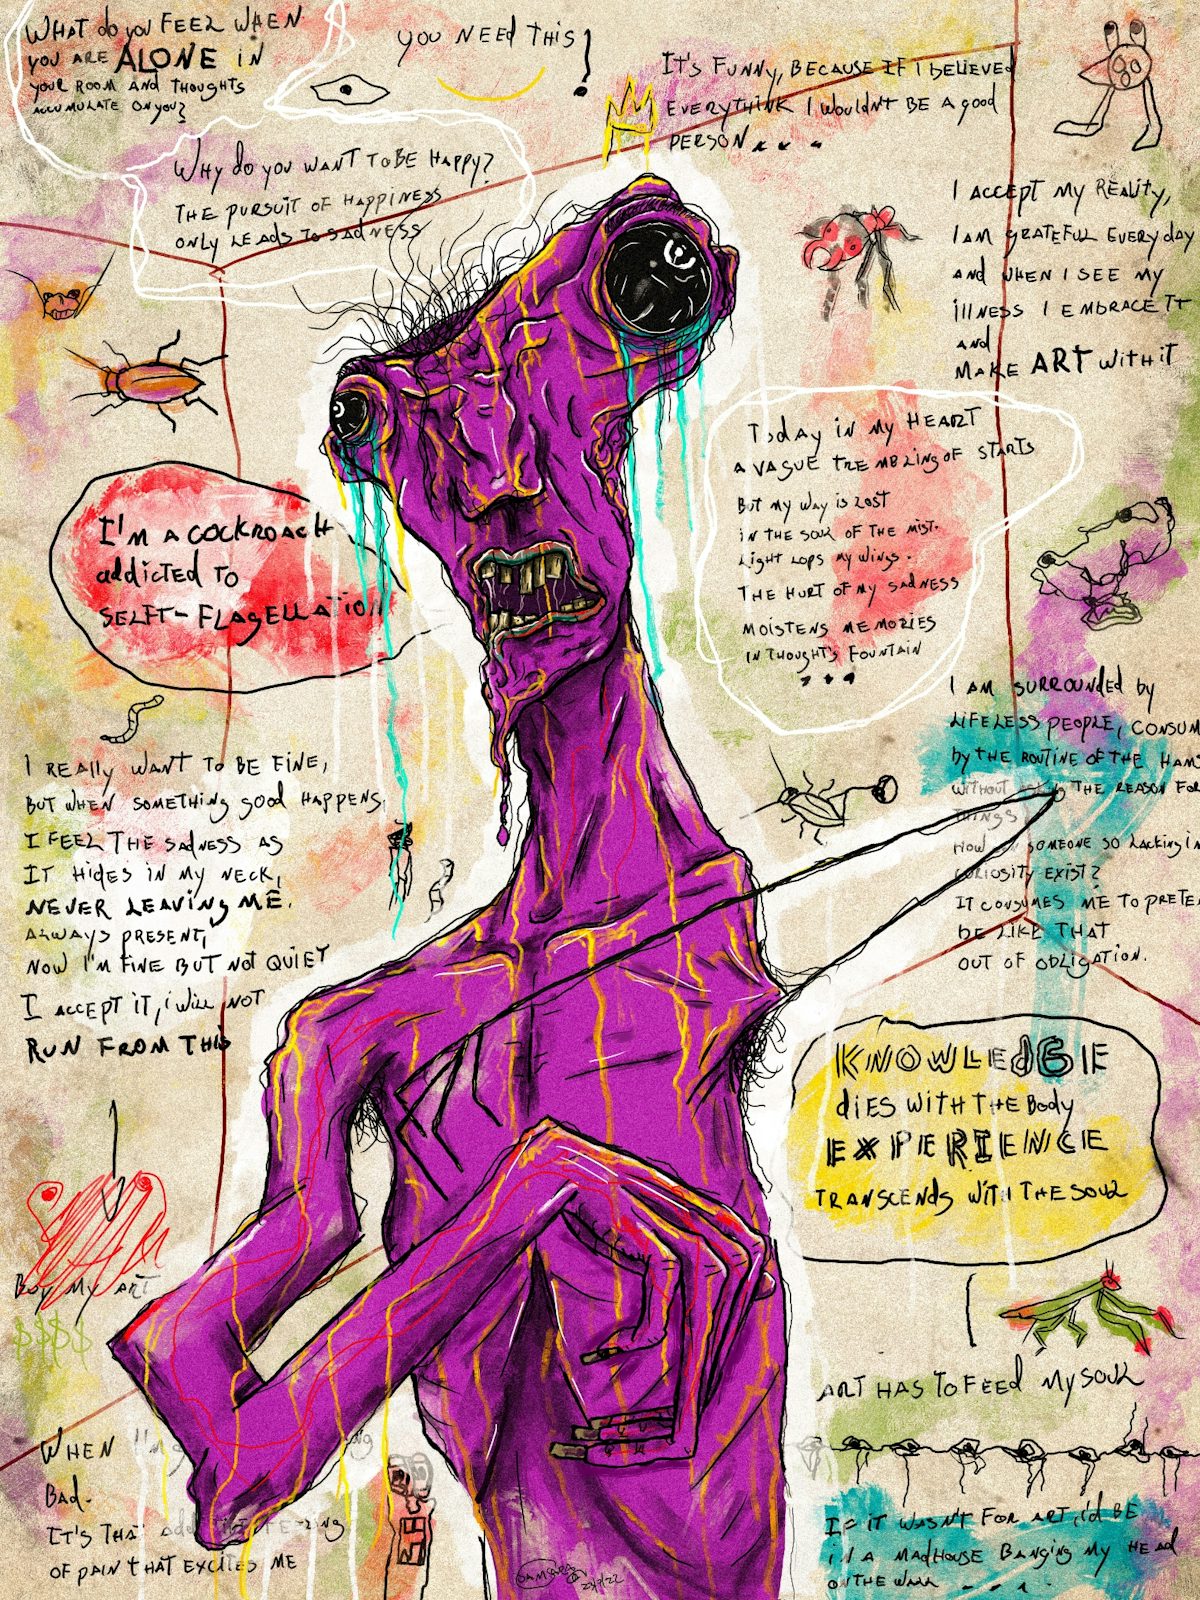 WHAT do you FEEL WHEN
you ARE ALONE IN
your ROOM AND THOUGHTS
ACCUMULATE ON you?
WHy do you WANT TO BE HAPPy?
THE PURSUIT OF HAPPINESS
ONLY LEADS TO SADNESS
YOU NEED THIS!
IT'S FUNNY, BECAUSE IF I BELIEVED
EVERYTHINK I WOULDN'T BE A good
PERSON...
I ACCEPT MY REALITY,
I AM GRATEFUL EVERY day
AND WHEN I SEE MY
ILLNESS I EMBRACE IT
AND
MAKE ART WITH IT
I'M A COCKROACH
addicted TO
SELFT-FLAGELLATION
Today IN MY HEART
A VAGUE TREMBLING OF STARTS
BUT MY WAY IS LOST
IN THE SOUL OF THE MIST.
LIGHT LOPS MY WINGS.
THE HURT OF MY SADNESS
MOISTENS MEMORIES
IN THOUGHT'S FOUNTAIN
...
I AM SURROUNDED by
LIFELESS PEOPLE, CONSUM
by THE ROUTINE OF THE HAMS
WITHOUT THE REASON FOR
THINGS
HOW SOMEONE SO LACKING IN
CURIOSITY EXIST?
IT CONSUMES ME TO PRETE
BE LIKE THAT
OUT OF OBLIGATION.
I REALLY WANT TO BE FINE,
BUT WHEN SOMETHING good HAPPENS,
I FEEL THE SADNESS AS
IT HIDES IN MY NECK,
NEVER LEAVING ME.
ALWAYS PRESENT,
NOW I'M FINE BUT NOT QUIET
I ACCEPT IT, I WILL NOT
RUN FROM THIS
KNOWLEDGE
dIES WITH THE Body
EXPERIENCE
TRANSCENDS WITH THE SOUL
BUY MY ART
$$$$
ART HAS TO FEED MY SOUL
WHEN I'M
Bad.
IT'S THAT
OF PAIN THAT EXCITES ME
IF IT WASN'T FOR ART, I'd BE
IN A MADHOUSE BANGING MY HEAD
ON THE WALL ....
23/9/22